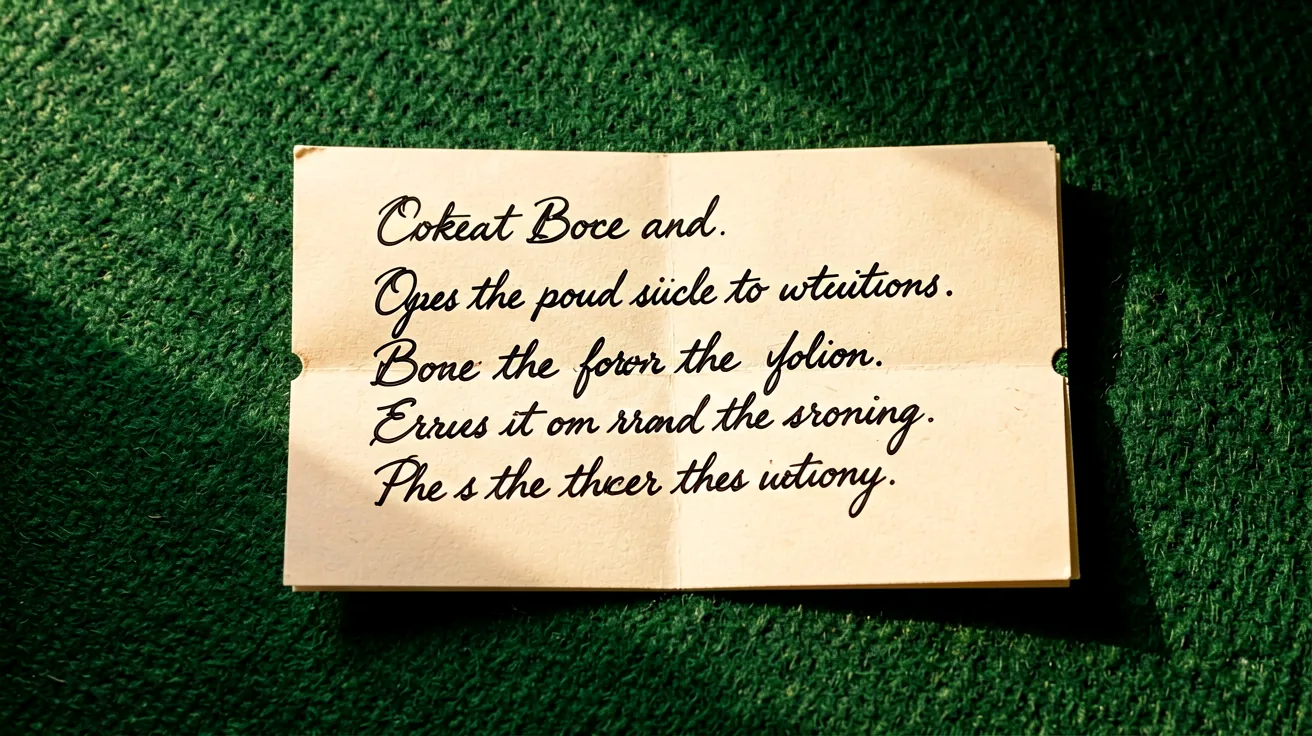 Cokeat Boce and.
Opes the poud siicle to wtuitions.
Bone the fororr the yolion.
Errues it om rrand the sroning.
Phe s the thcer thes iutiony.